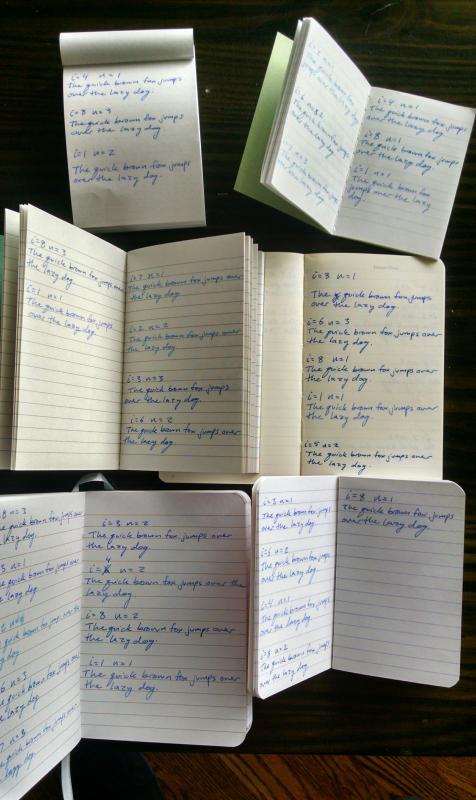 i=4 n=1
The quick brown fox jumps
over the lazy dog.
i=8 n=3
The quick brown fox jumps
over the lazy dog
i=1 n=2
The quick brown fox jumps
over the lazy dog.
i=4 n=1
The quick brown fox jumps
over the lazy dog.
i=8 n=1
The quick brown fox jumps
over the lazy dog.
i=1 n=1
The quick brown fox jumps
over the lazy dog.
i=8 n=3
The quick brown fox jumps over
the lazy dog.
i=1 n=1
The quick brown fox jumps
over the lazy dog.
n=1
The quick brown fox jumps over
the lazy dog.
i=2 n=2
The quick brown fox jumps over
the lazy dog.
i=3 n=3
The quick brown fox jumps
over the lazy dog.
i=6 n=2
The quick brown fox jumps over
the lazy dog.
i=3 n=1
The quick brown fox jumps
over the lazy dog.
i=6 n=3
The quick brown fox jumps over
the lazy dog.
i=8 n=1
The quick brown fox jumps over
the lazy dog.
i=1 n=1
The quick brown fox jumps over
the lazy dog.
i=5 n=2
The quick brown fox jumps over
the lazy dog.
n=3
quick brown fox jumps over
lazy dog.
n=1
quick brown fox jumps over
lazy dog.
quick brown fox jumps over the
dog
n=3
quick brown fox jumps over
lazy dog.
quick brown fox jumps over
lazy dog.
i=3 n=2
The quick brown fox jumps over
the lazy dog.
4
i= n=2
The quick brown fox jumps over the
lazy dog.
i=8 n=2
The quick brown fox jumps over
the lazy dog.
i=1 n=1
The quick brown fox jumps over
the lazy dog.
i=3 n=1
The quick brown fox jumps
over the lazy dog.
n=2
The quick brown fox jumps
over the lazy dog.
i=4 n=1
The quick brown fox jumps
over the lazy dog.
n=2
The quick brown fox jumps
over the lazy dog.
i=8 n=1
The quick brown fox jumps
over the lazy dog.